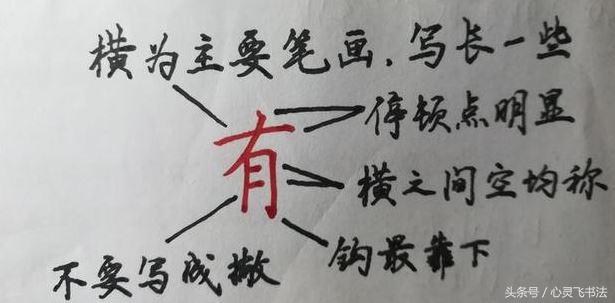 横为主要笔画，写长一些
停顿点明显
有
横之间空均称
不要写成撇
钩最靠下
头条号/心灵飞书法